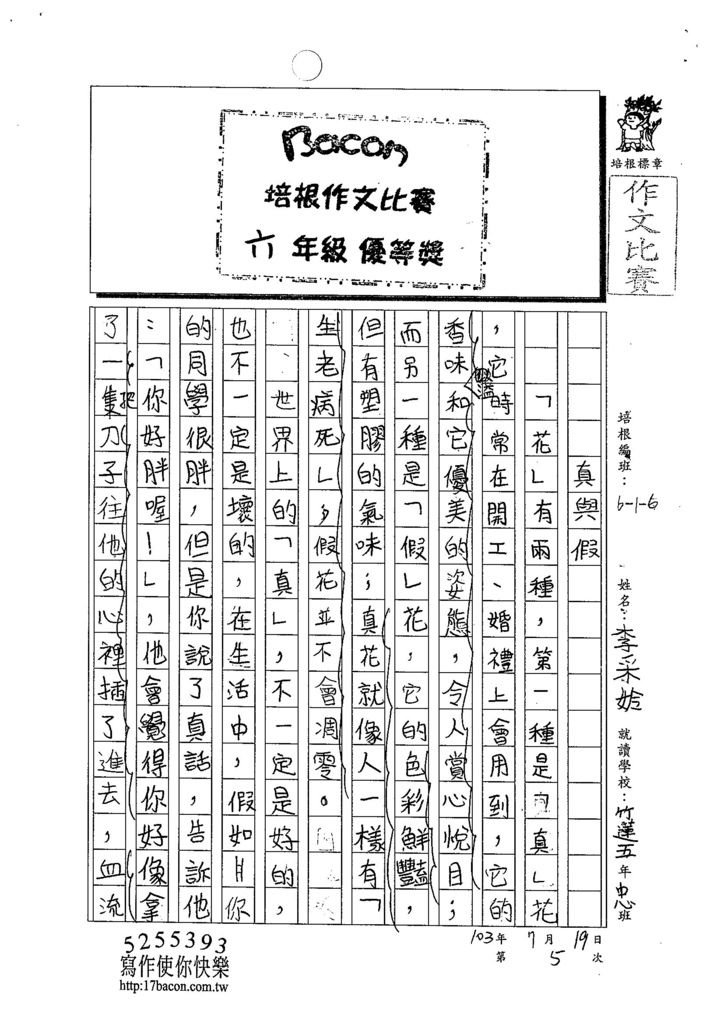 Bacon
培根作文比賽
六年級 優等獎
培根標章
作文比賽
培根編班：6-1-6
姓名：李采姈
就讀學校：竹蓮五年忠班
103年7月19日
第5次
真與假
「花」有兩種，第一種是「真」花
，它時常在開工、婚禮上會用到，它的
香味和它優美的姿態，令人賞心悅目；
而另一種是「假」花，它的色彩鮮豔，
但有塑膠的氣味；真花就像人一樣有「
生老病死」，假花並不會凋零。
世界上的「真」，不一定是好的，
也不一定是壞的，在生活中，假如你
的同學很胖，但是，你說了真話，告訴他
：「你好胖喔！」，他會覺得你好像拿
了一把刀子往他的心裡插了進去，血流
5255393
寫作使你快樂
http:17bacon.com.tw